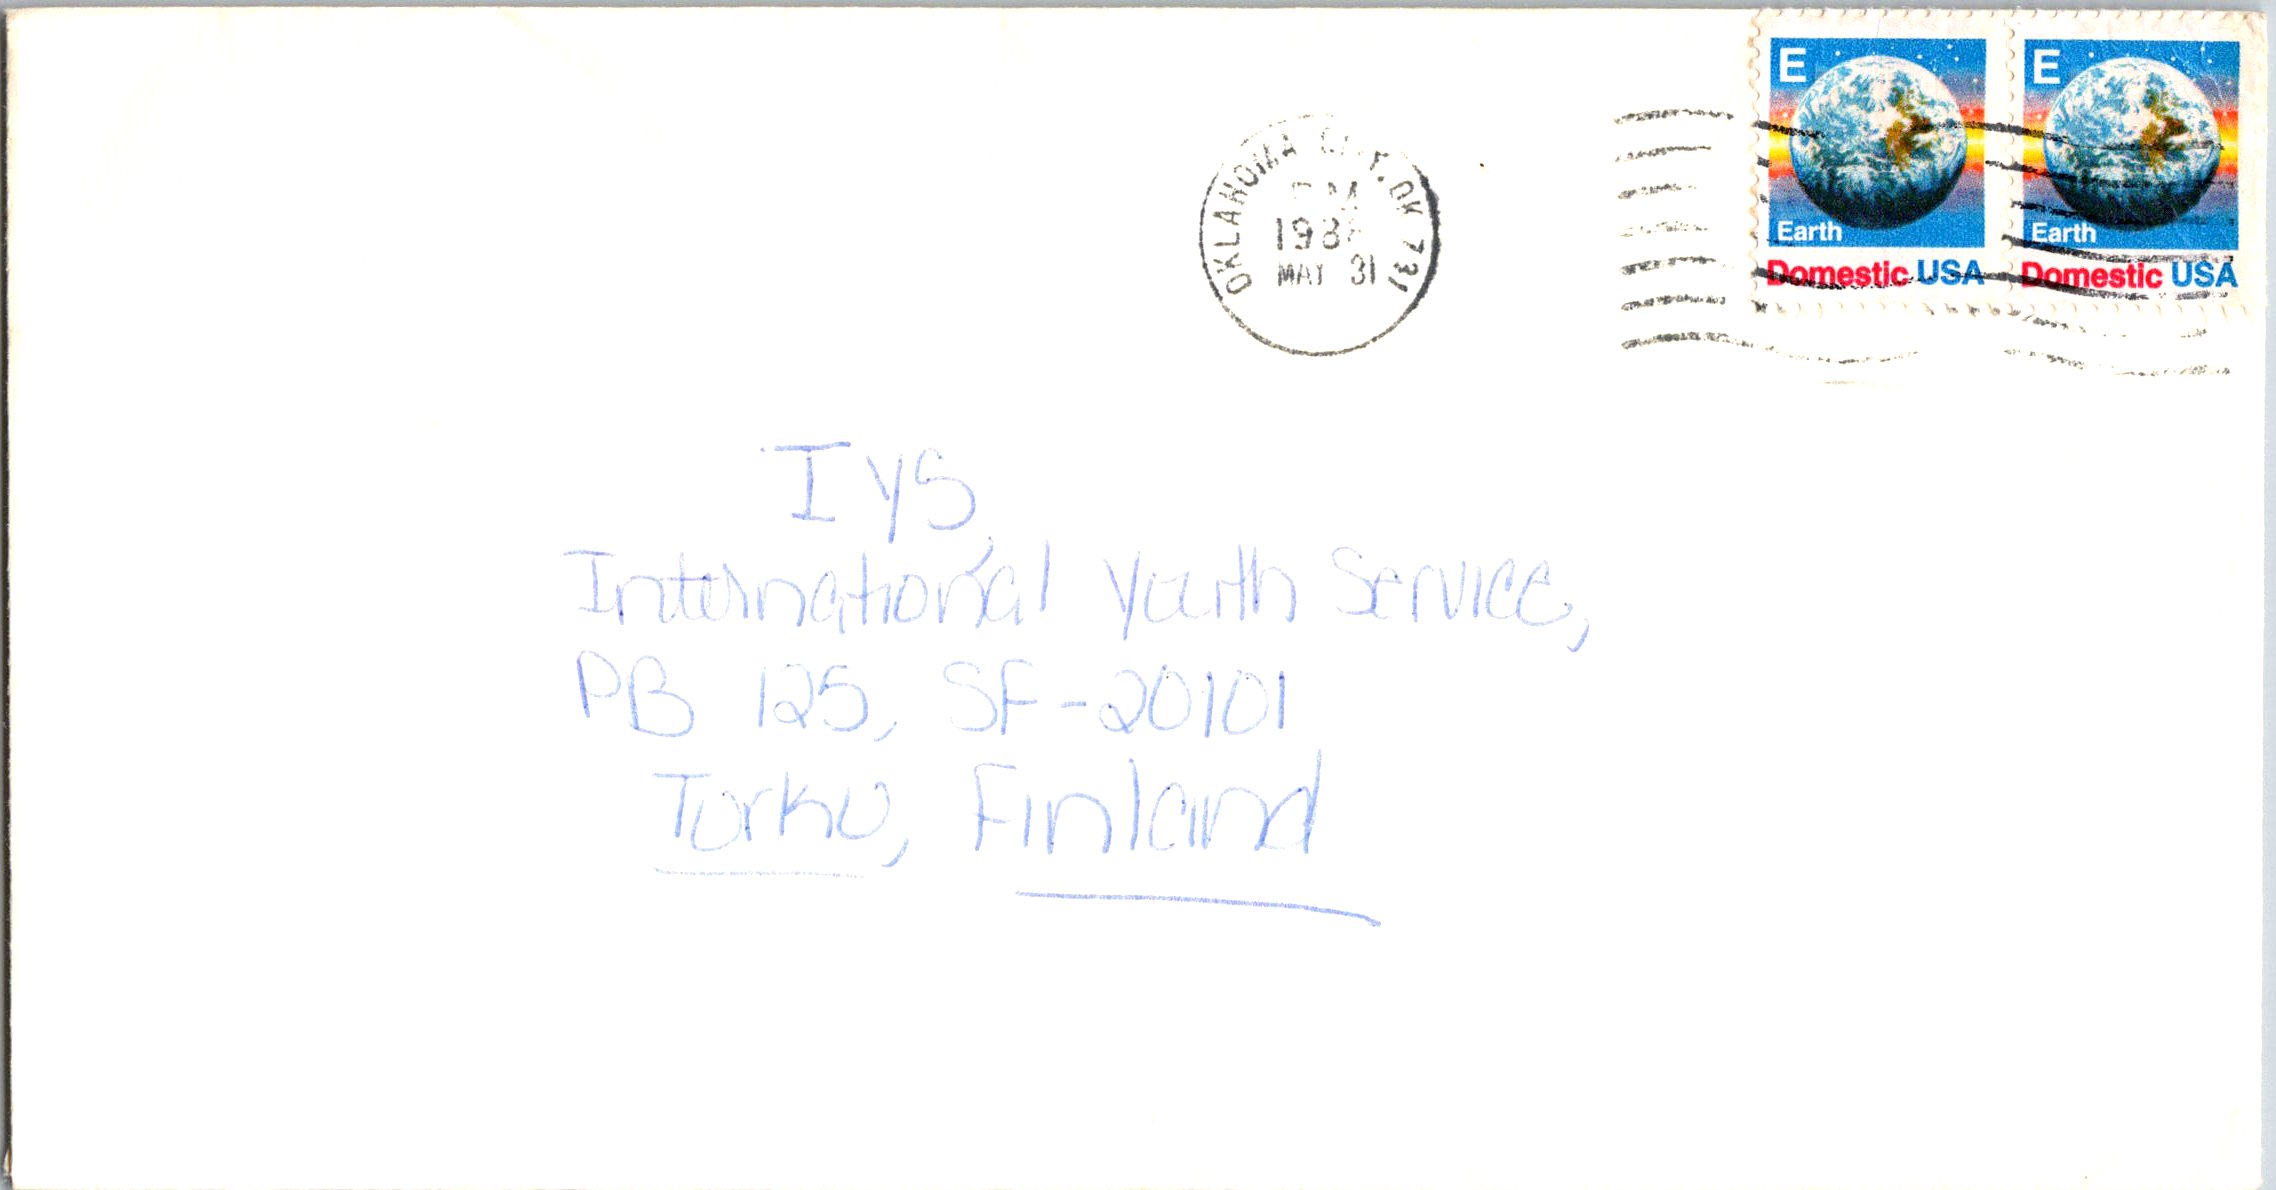 E
Earth
Domestic USA
E
Earth
Domestic USA
OKLAHOMA CITY, OK 731
PM
MAY 31
IYS,
International Youth Service,
PB 125, SF-20101
Turku, Finland